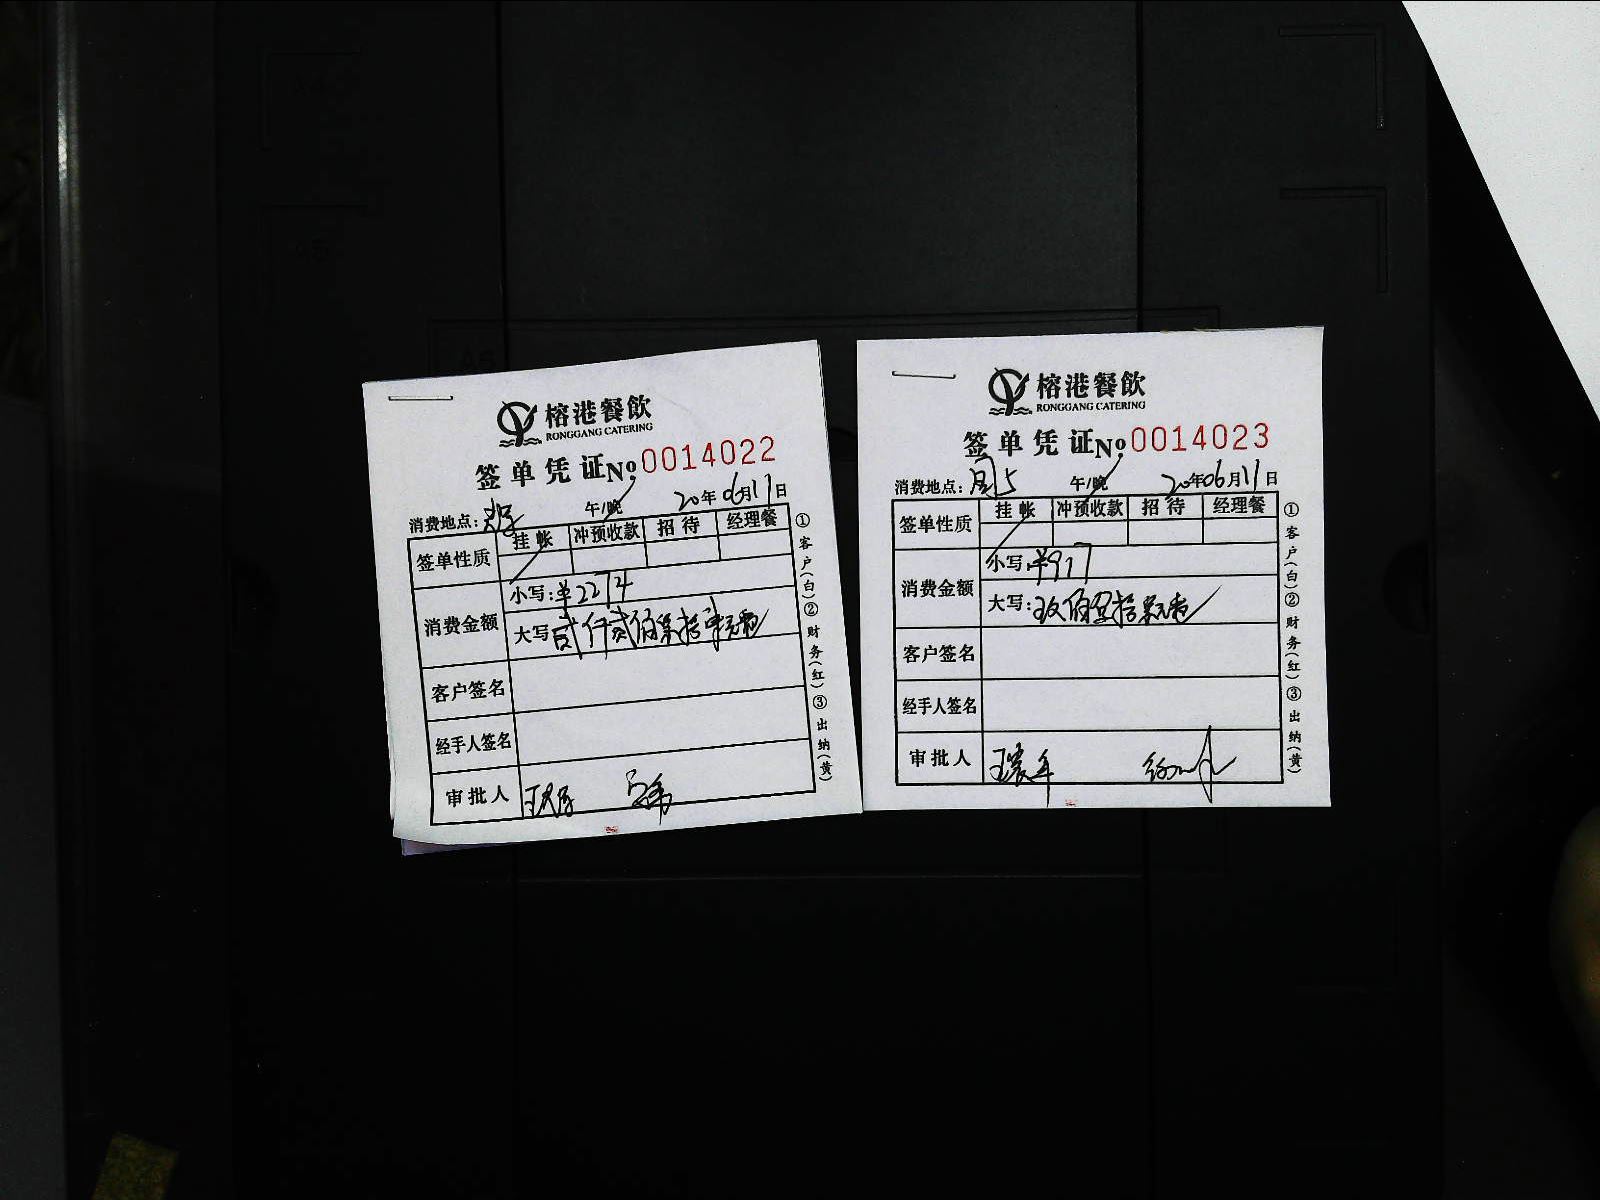 榕港餐飲
RONGGANG CATERING
签单凭证No.0014022
消费地点：
午/晚
20年06月11日
签单性质 挂帐 冲预收款 招待 经理餐
消费金额
小写：¥2274
大写 贰仟贰佰柒拾肆元整
客户签名
经手人签名
审批人
①客户(白)②财务(红)③出纳(黄)
榕港餐飲
RONGGANG CATERING
签单凭证No.0014023
消费地点：
午/晚
20年06月11日
签单性质 挂帐 冲预收款 招待 经理餐
消费金额
小写：¥917
大写：玖佰壹拾柒元整
客户签名
经手人签名
审批人
①客户(白)②财务(红)③出纳(黄)